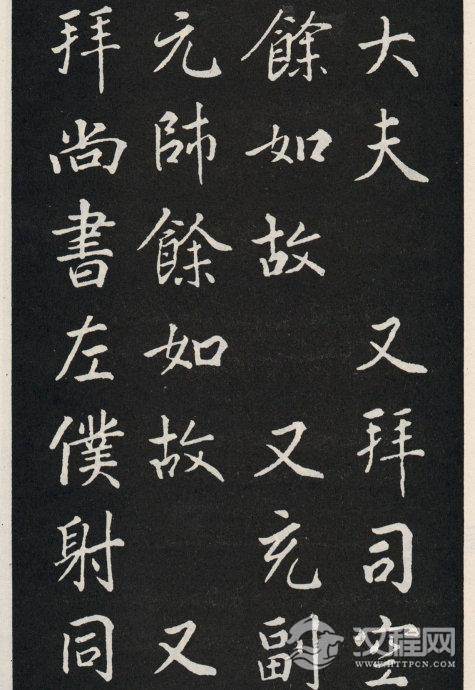 大夫 又拜司空
餘如故 又充副
元帥餘如故 又
拜尚書左僕射同
汉程网
WWW.HTTPCN.COM